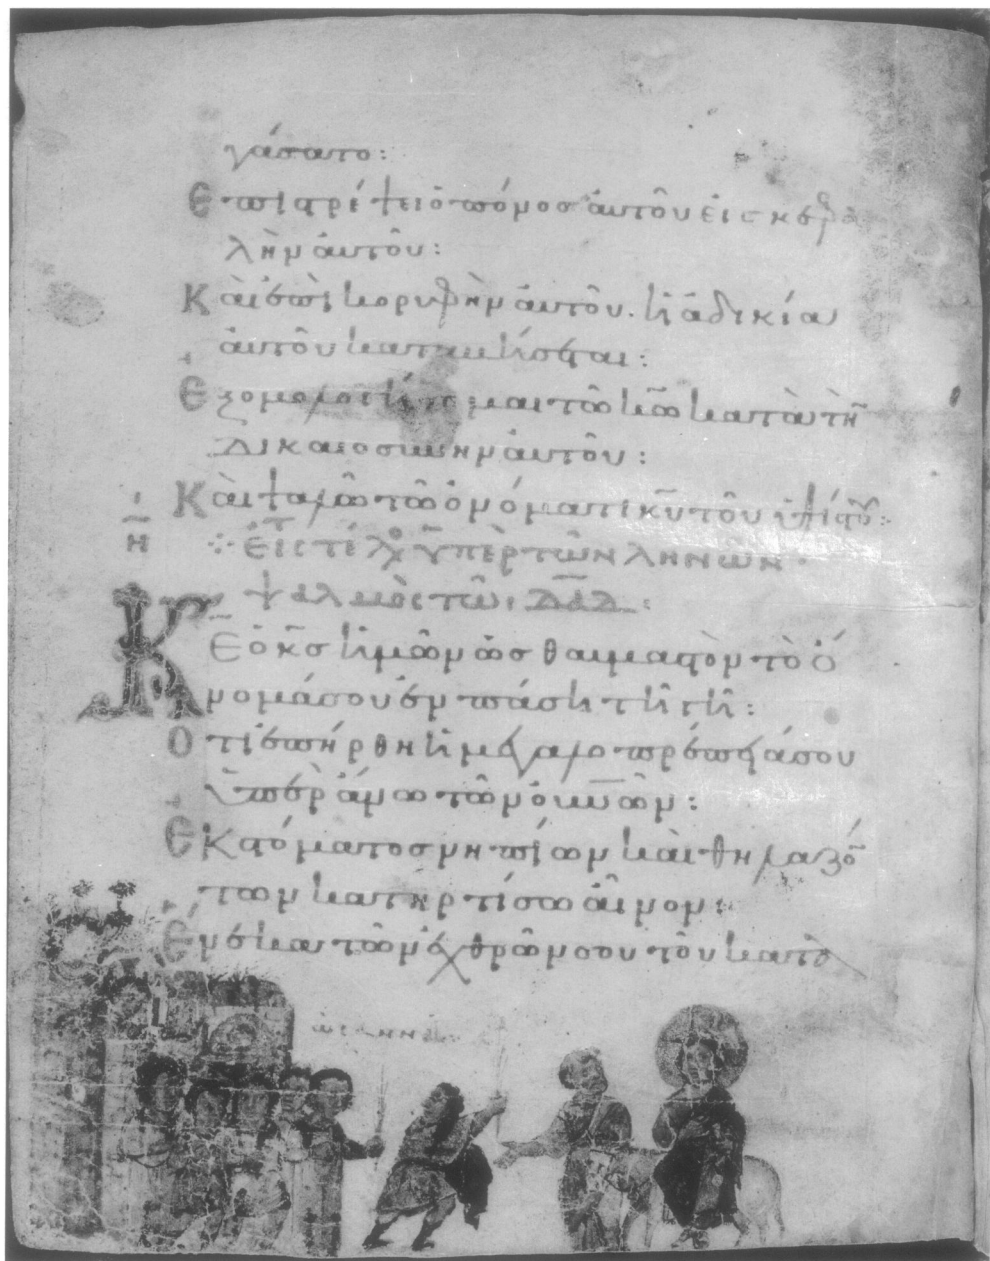 γάσατο:
Ἐπιστρέψει ὁ πόνος αὐτοῦ εἰς κεφα
λὴν αὐτοῦ:
Καὶ ἐπὶ κορυφὴν αὐτοῦ. ἡ ἀδικία
αὐτοῦ καταβήσεται:
Ἐξομολογήσομαι τῶ κῶ κατὰ τὴ̄
δικαιοσύνην αὐτοῦ:
Καὶ ψαλῶ τῶ ὀνόματι κ̄υ τοῦ ὑψίστου:
η̄
Εἰς τὸ τέλος ὑπὲρ τῶν ληνῶν
ψαλμὸς τῶ δ̄ᾱδ:
Κ̄ε ὁ κ̄ς ἡμῶν ὡς θαυμαστὸν τὸ ὄ
νομά σου ἐν πάση τῆ γῆ:
Ὅτι ἐπήρθη ἡ μεγαλοπρέπειά σου
ὑπεράνω τῶν οὐ̄νῶν:
Ἐκ στόματος νηπίων καὶ θηλαζό̄
των κατηρτίσω αἶνον:
Ἕνεκα τῶν ἐχθρῶν σου τοῦ κατα